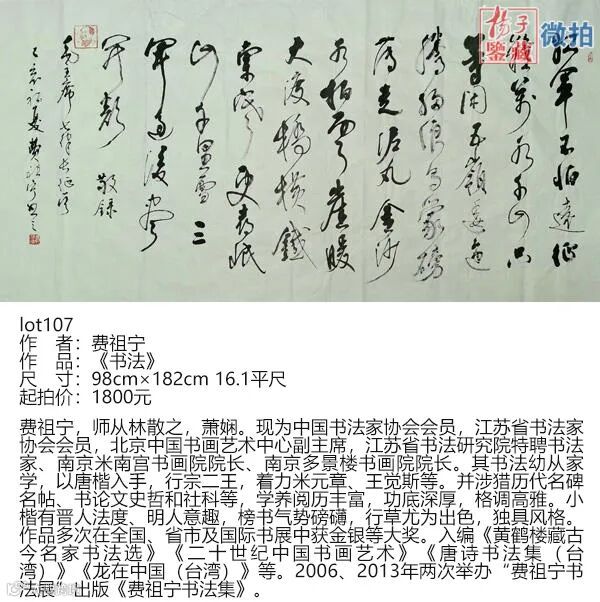 揚子鑒藏
微拍
紅軍不怕遠征
難萬水千山只
等闲五嶺逶迤
騰細浪烏蒙磅
礴走泥丸金沙
水拍雲崖暖
大渡橋橫鐵
索寒更喜岷
山千里雪三
軍過後盡
開顏 敬錄
毛主席七律長征
lot107
作　者：费祖宁
作　品：《书法》
尺　寸：98cm×182cm 16.1平尺
起拍价：1800元
费祖宁，师从林散之，萧娴。现为中国书法家协会会员，江苏省书法家
协会会员，北京中国书画艺术中心副主席，江苏省书法研究院特聘书法
家、南京米南宫书画院院长、南京多景楼书画院院长。其书法幼从家
学，以唐楷入手，行宗二王，着力米元章、王觉斯等。并涉猎历代名碑
名帖、书论文史哲和社科等，学养阅历丰富，功底深厚，格调高雅。小
楷有晋人法度、明人意趣，榜书气势磅礴，行草尤为出色，独具风格。
作品多次在全国、省市及国际书展中获金银等大奖。入编《黄鹤楼藏古
今名家书法选》《二十世纪中国书画艺术》《唐诗书法集（台
湾）》《龙在中国（台湾）》等。2006、2013年两次举办“费祖宁书
法展”出版《费祖宁书法集》。